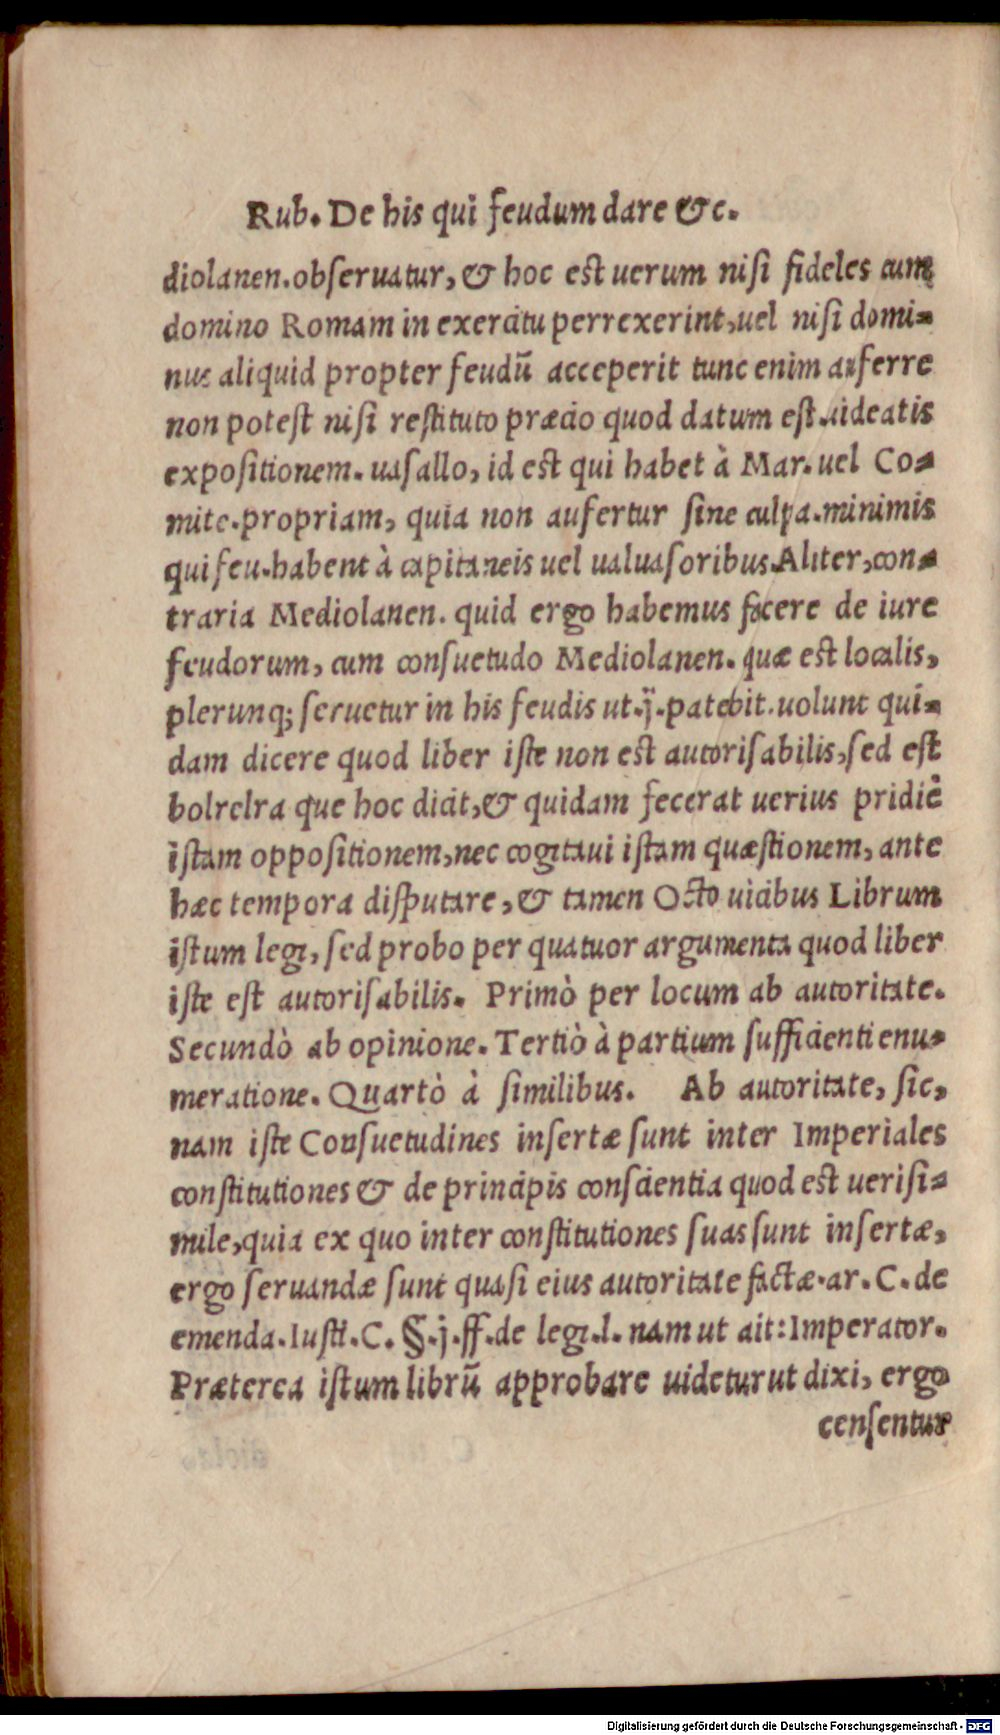 Rub. De his qui feudum dare &c.
diolanen. obseruatur, & hoc est uerum nisi fideles cum
domino Romam in exercitu perrexerint, uel nisi domi-
nus aliquid propter feudū acceperit tunc enim auferre
non potest nisi restituto præcio quod datum est. uideatis
expositionem. uasallo, id est qui habet à Mar. uel Co-
mite. propriam, quia non aufertur sine culpa. minimis
qui feu. habent à capitaneis uel ualuasoribus. Aliter, con-
traria Mediolanen. quid ergo habemus facere de iure
feudorum, cum consuetudo Mediolanen. quæ est localis,
plerunq; seruetur in his feudis ut. ij. patebit. uolunt qui-
dam dicere quod liber iste non est autorisabilis, sed est
bolrelra que hoc dicit, & quidam fecerat uerius pridiē
istam oppositionem, nec cogitaui istam quæstionem, ante
hæc tempora disputare, & tamen Octo uicibus Librum
istum legi, sed probo per quatuor argumenta quod liber
iste est autorisabilis. Primò per locum ab autoritate.
Secundò ab opinione. Tertiò à partium sufficienti enu-
meratione. Quartò à similibus. Ab autoritate, sic,
nam iste Consuetudines insertæ sunt inter Imperiales
constitutiones & de principis conscientia quod est uerisi-
mile, quia ex quo inter constitutiones suas sunt insertæ,
ergo seruandæ sunt quasi eius autoritate factæ. ar. C. de
emenda. Iusti. C. §. j. ff. de legi. l. nam ut ait: Imperator.
Præterea istum librū approbare uidetur ut dixi, ergo
censentur
Digitalisierung gefördert durch die Deutsche Forschungsgemeinschaft - DFG